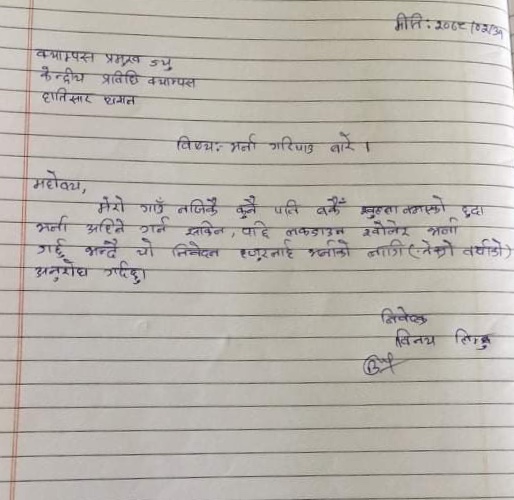 मिति: २०७८/०२/३१
क्याम्पस प्रमुख ज्यु
केन्द्रीय प्रविधि क्याम्पस
हात्तिसार धरान
विषय: भर्ना गरिपाउ बारे ।
महोदय,
मेरो गाउँ नजिकै कुनै पनि वर्कै खुल्ला नभएको हुदा
भर्ना अहिले गर्न सकिन, पछि लकडाउन खोलेर भर्ना
गर्छु भन्दै यो निवेदन हजुरलाई भर्नाको लागि (वर्षको)
अनुरोध गर्दछु।
निवेदक
विनय लिम्बु